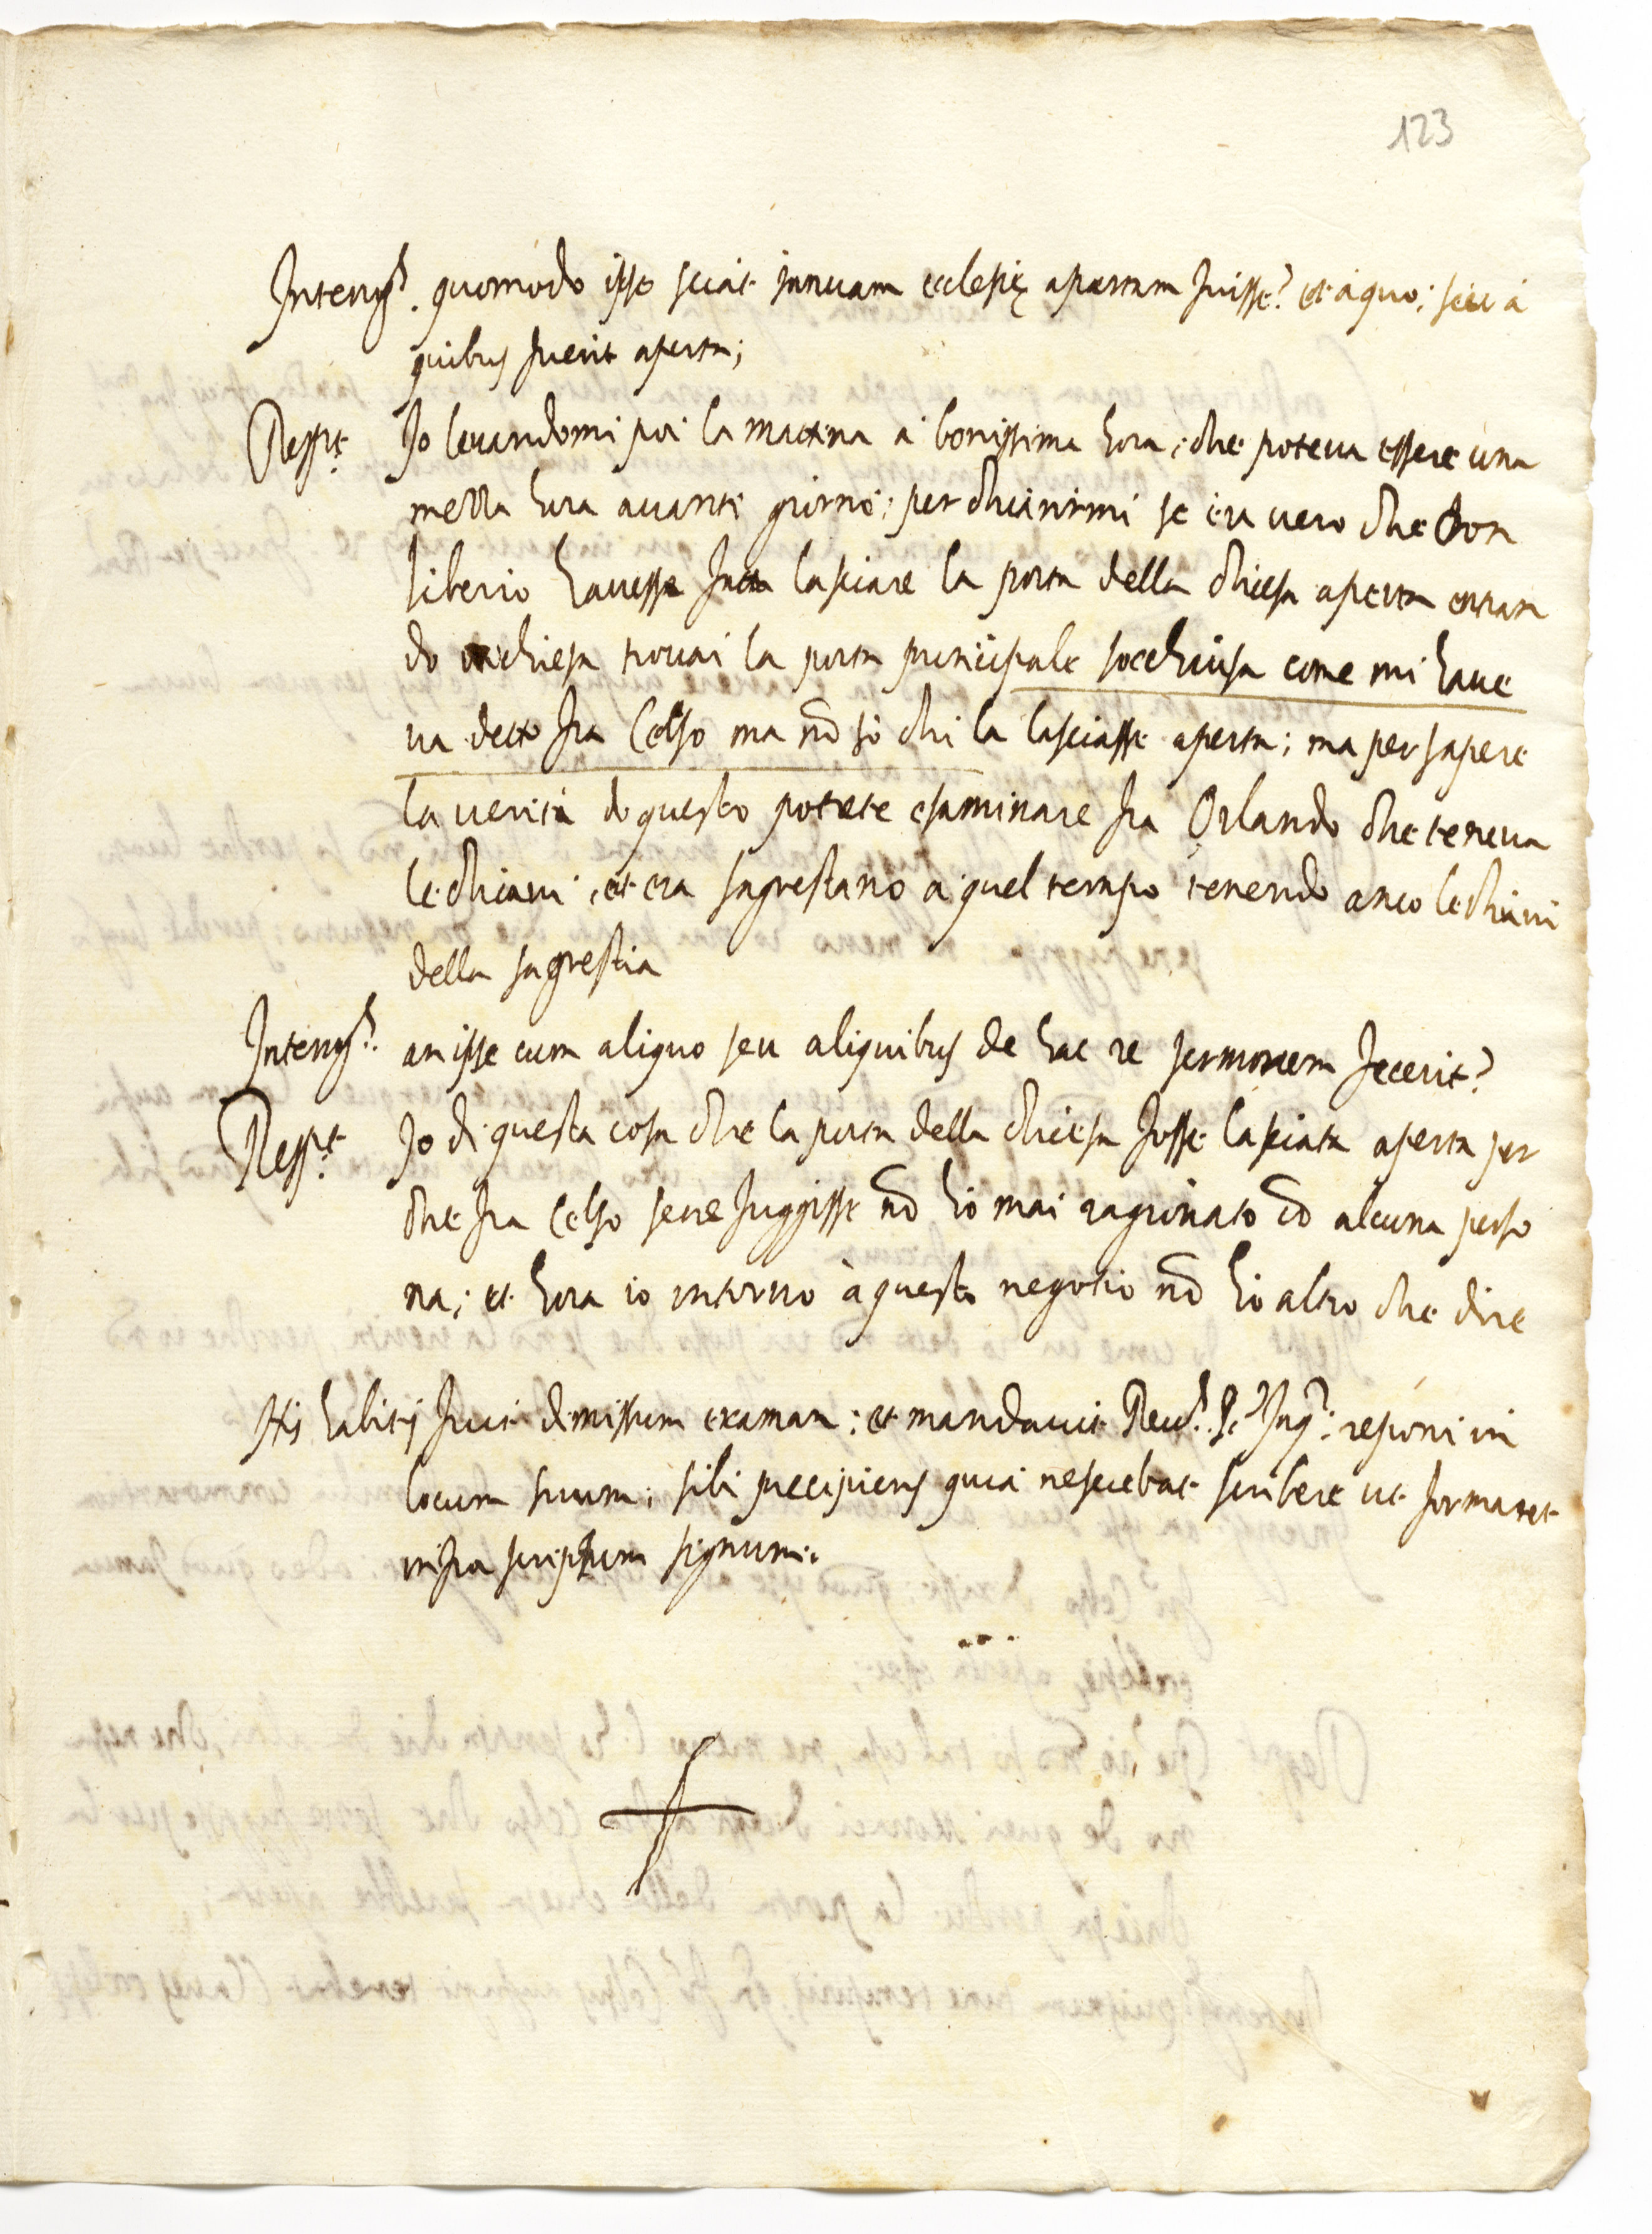 123
Interrog.s quomodo ipse sciat januam ecclesię apertam fuisse? et à quo; seu à
quibus fuerit aperta;
Resp.t Io levandomi poi la mattina a bonissima hora; che poteva essere una
mezza hora avanti giorno; per chiarirmi se era vero che Don
Liberio havesse fatta lasciare la porta della chiesa aperta entran
do in chiesa trovai la porta principale socchiusa come mi have
va detto fra Celso ma nō sò chi la lasciasse aperta; ma per sapere
la verità di questo potete esaminare fra Orlando che teneva
le chiavi, et era sagrestano a quel tempo tenendo anco le chiavi
della sagrestia
Interrog.s an ipse cum aliquo seu aliquibus de hac re sermonem fecerit?
Resp.t Io di questa cosa che la porta della chiesa fosse lasciata aperta per
che fra Celso se ne fuggisse nō hò mai ragionato cō alcuna perso
na; et hora io intorno à questo negotio nō hò altro che dire
His habitis fuit dimissum examen; et mandavit Rev.s P. Inq.r reponi in
locum suum; sibi precipiens quia nesciebat scribere ut formaret
infra scriptum signum.